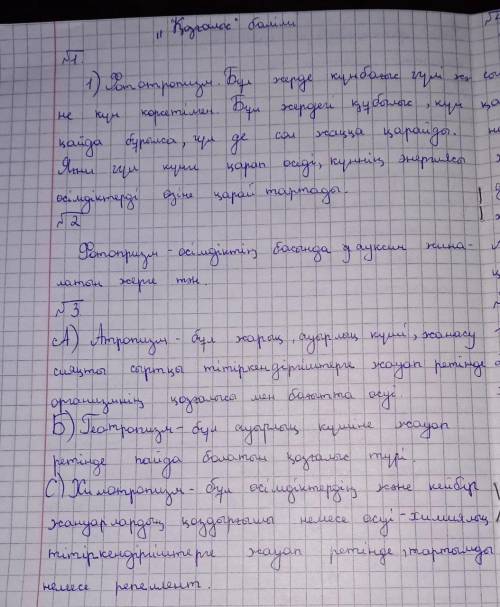 „Қозғалыс" бөлімі
№1.
1) Фототропизм. Бұл жерде күнбағыс гүлі жә
не күн көрсетілген. Бұл жердегі құбылыс, күн
қайда бұрылса, гүл де сол жаққа қарайды.
Яғни гүл күнге қарап өседі, күннің энергиясы
өсімдіктерді өзіне қарай тартады.
№2
Фотопризм - өсімдіктің басында ауксин жина-
латын жерге тән.
№3
А) Атропизм - бұл жарық, ауырлық күші, жанасу
сияқты сыртқы тітіркендіргіштерге жауап ретінде
организмнің қозғалысы мен бағытта өсуі.
Б) Геатропизм - бұл ауырлық күшіне жауап
ретінде пайда болатын қозғалыс түрі.
С) Химотропизм - бұл өсімдіктердің және кейбір
жануарлардың қоздырғышы немесе өсуі - химиялық
тітіркендіргіштерге жауап ретінде, тартымды
немесе репеллент.